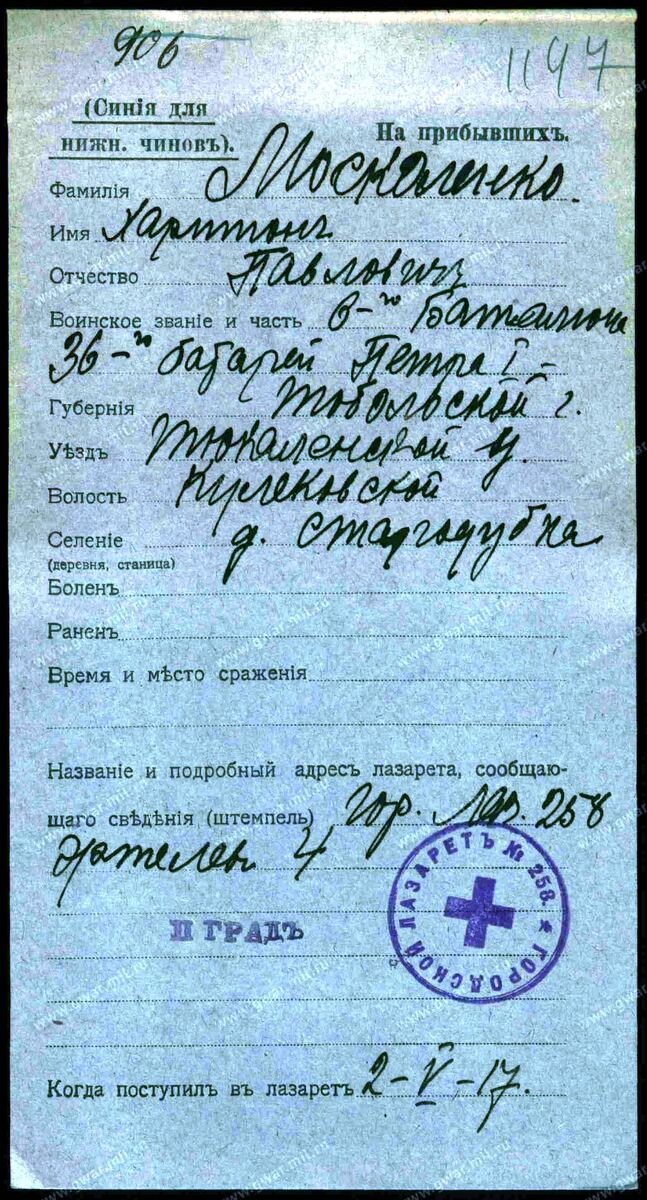 906
1197
(Синія для
нижн. чиновъ).
На прибывшихъ.
Фамилія Москаленко.
Имя Харитонъ
Отчество Павловичъ
Воинское званіе и часть 6-го Баталиона
36-го батареи Петра I –
Губернія Тобольской г.
Уѣздъ Тюкаленской у.
Волость Кулековской
Селеніе д. Стародубка
(деревня, станица)
Боленъ
Раненъ
Время и мѣсто сраженія
Названіе и подробный адресъ лазарета, сообщаю-
щаго свѣдѣнія (штемпель) гор. Лаз. 258
4
ГОРОДСКОЙ ЛАЗАРЕТЪ № 258.
П ГРАДЪ
Когда поступилъ въ лазаретъ 2–V–17.
www.gwar.mil.ru